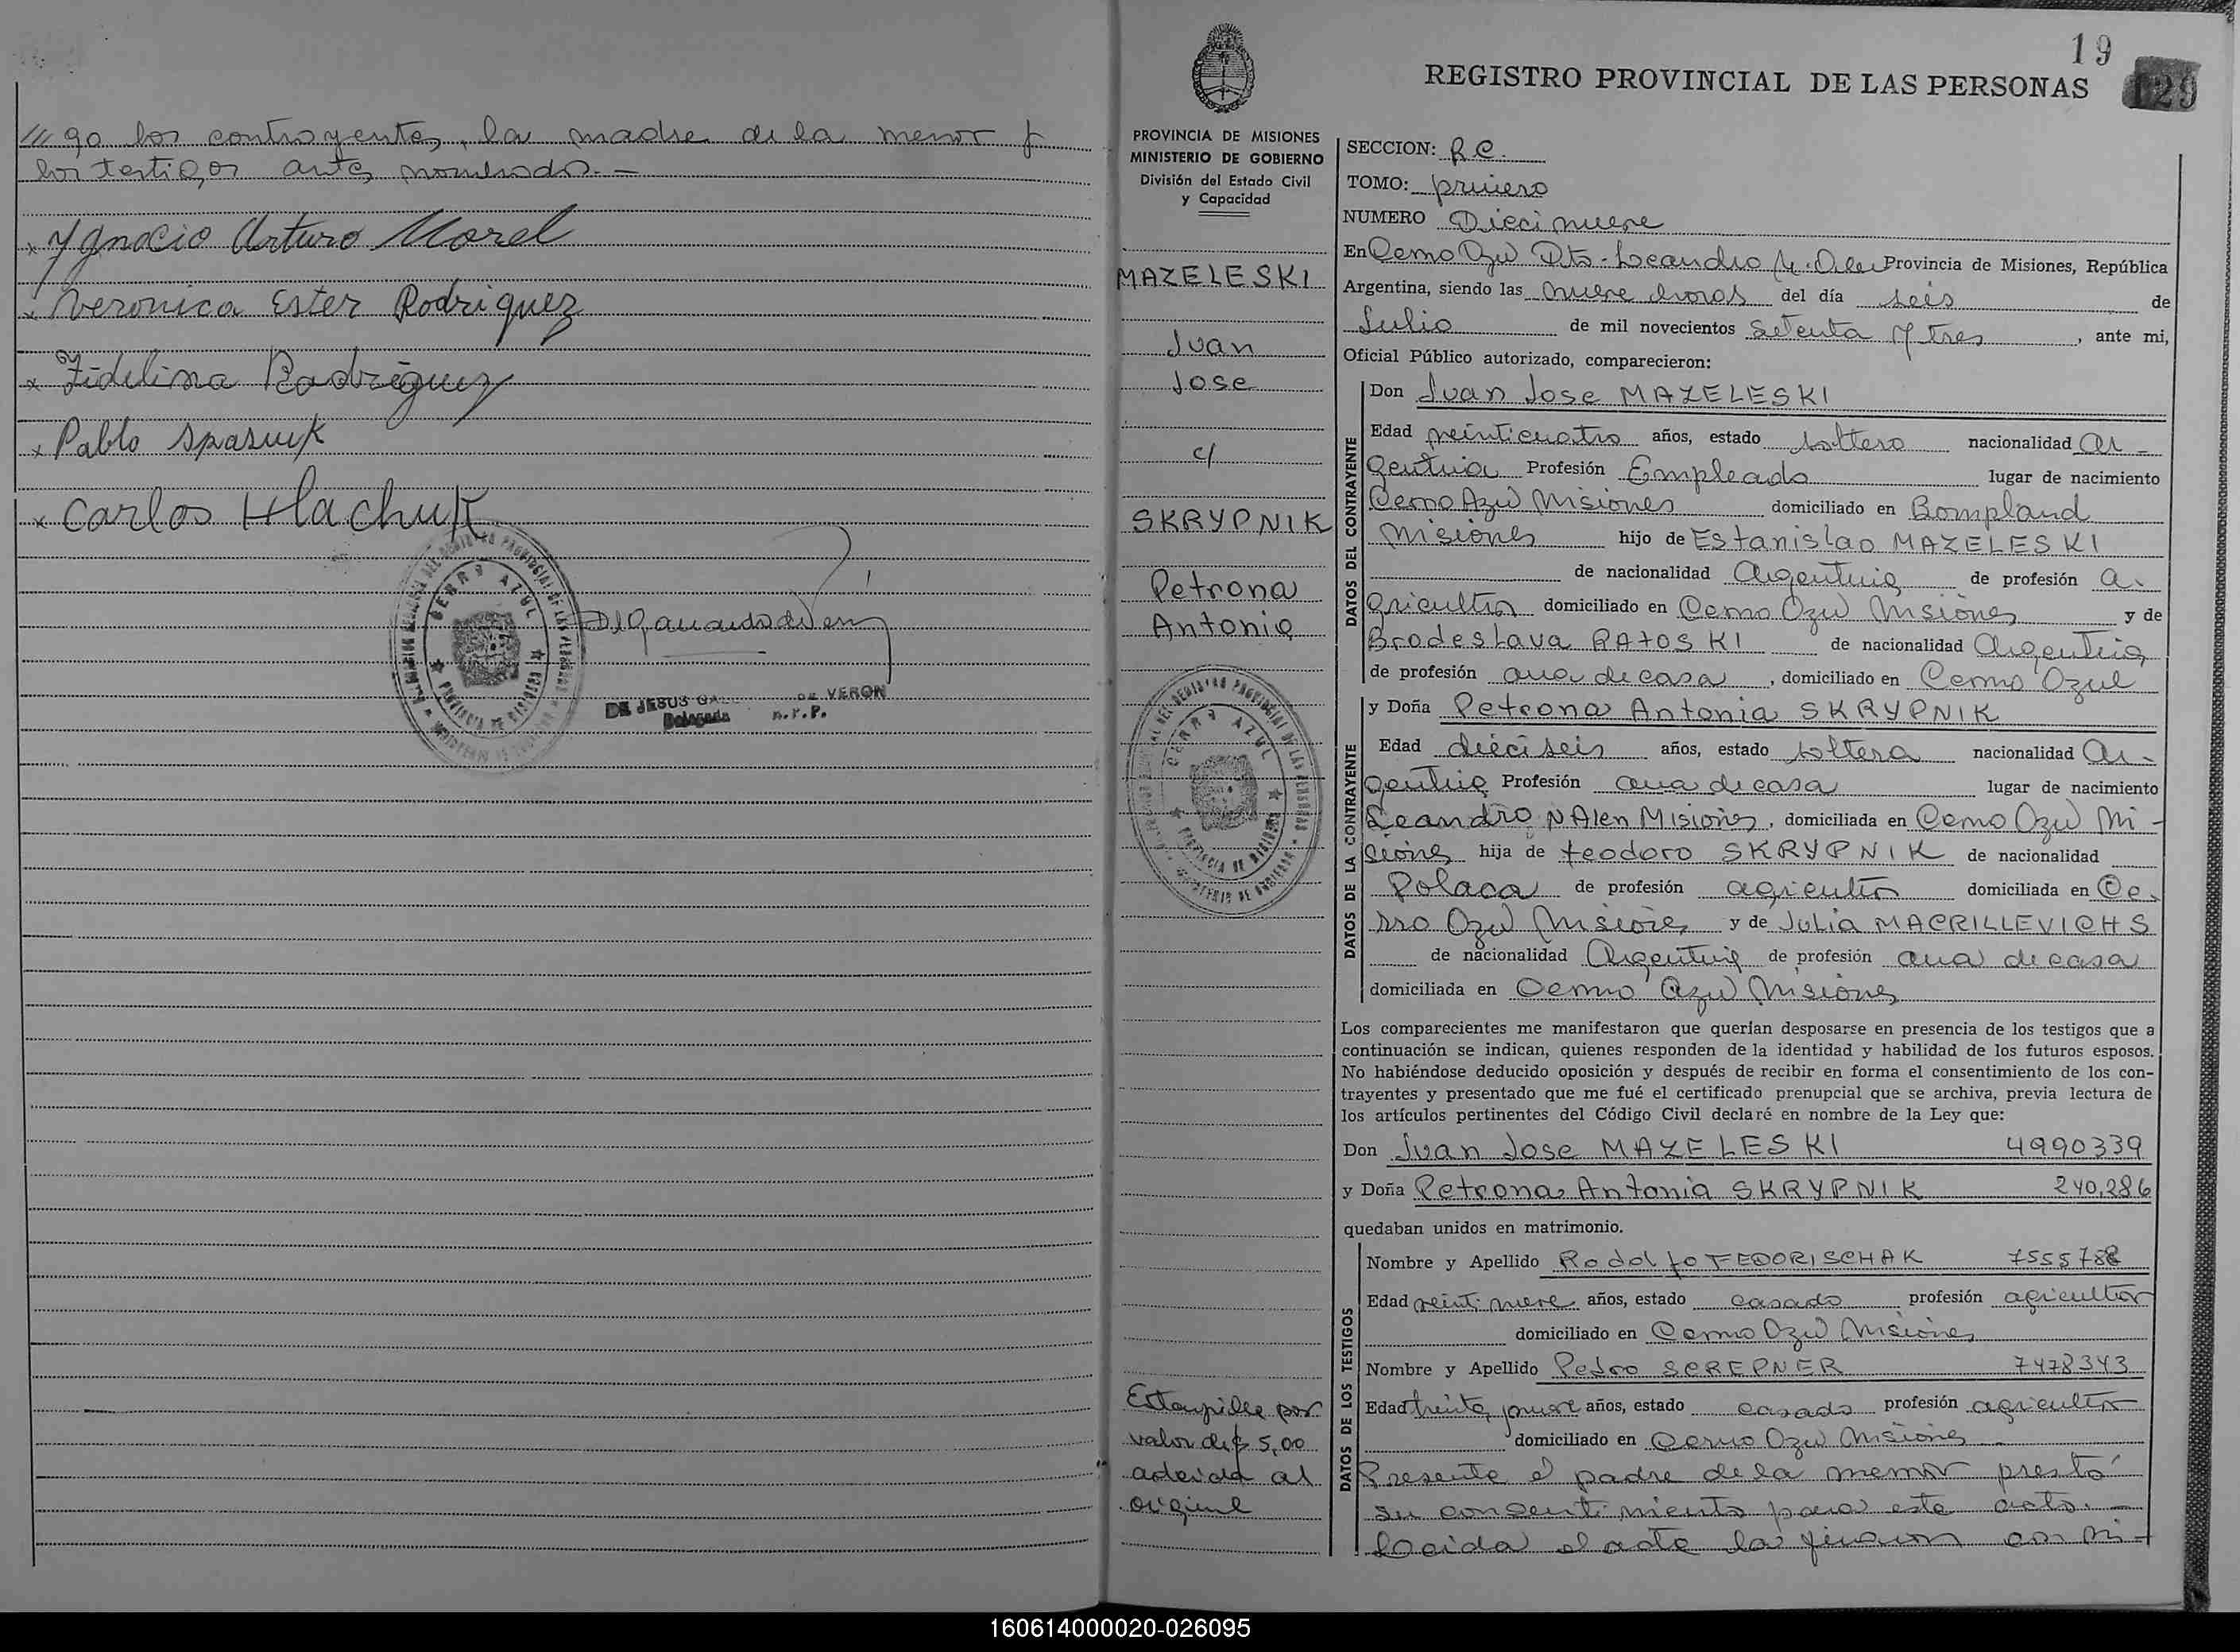 /// go los contrayentes, la madre de la menor y
los testigos antes nombrados.-
x Ygnacio Arturo Morel
x Veronica Ester Rodriguez
x Fidelina Rodriguez
x Pablo Spasiuk
x Carlos Hlachuk
CERRO AZUL
PROVINCIA DE MISIONES
DE JESUS DE VERON
Delegada R.P.P.
19
REGISTRO PROVINCIAL DE LAS PERSONAS
129
PROVINCIA DE MISIONES
MINISTERIO DE GOBIERNO
División del Estado Civil
y Capacidad
MAZELESKI
Juan
Jose
c/
SKRYPNIK
Petrona
Antonia
CERRO AZUL
PROVINCIA DE MISIONES
Estampilla por
valor de $ 5,00
aderida al
original
SECCION: R.C.
TOMO: primero
NUMERO Diecinueve
En Cerro Azul Dto. Leandro N. Alem Provincia de Misiones, República
Argentina, siendo las nueve horas del día seis de
Julio de mil novecientos setenta y tres, ante mi,
Oficial Público autorizado, comparecieron:
DATOS DEL CONTRAYENTE
Don Juan Jose MAZELESKI
Edad veinticuatro años, estado soltero nacionalidad Ar-
gentina Profesión Empleado lugar de nacimiento
Cerro Azul Misiones domiciliado en Bompland
Misiones hijo de Estanislao MAZELESKI
de nacionalidad Argentina de profesión a-
gricultor domiciliado en Cerro Azul Misiones y de
Brodeslava RATOSKI de nacionalidad Argentina
de profesión ama de casa, domiciliado en Cerro Azul
DATOS DE LA CONTRAYENTE
y Doña Petrona Antonia SKRYPNIK
Edad dieciseis años, estado soltera nacionalidad Ar-
gentina Profesión ama de casa lugar de nacimiento
Leandro N Alen Misiones, domiciliada en Cerro Azul Mi-
siones hija de teodoro SKRYPNIK de nacionalidad
Polaca de profesión agricultor domiciliada en Ce-
rro Azul Misiones y de Julia MACRILLEVICHS
de nacionalidad Argentina de profesión ama de casa
domiciliada en Cerro Azul Misiones
Los comparecientes me manifestaron que querían desposarse en presencia de los testigos que a
continuación se indican, quienes responden de la identidad y habilidad de los futuros esposos.
No habiéndose deducido oposición y después de recibir en forma el consentimiento de los con-
trayentes y presentado que me fué el certificado prenupcial que se archiva, previa lectura de
los artículos pertinentes del Código Civil declaré en nombre de la Ley que:
Don Juan Jose MAZELESKI 4990339
y Doña Petrona Antonia SKRYPNIK 240,286
quedaban unidos en matrimonio.
DATOS DE LOS TESTIGOS
Nombre y Apellido Rodolfo FEDORISCHAK 7555788
Edad veintinueve años, estado casado profesión agricultor
domiciliado en Cerro Azul Misiones
Nombre y Apellido Pedro SCREPNER 7478343
Edad treinta y nueve años, estado casado profesión agricultor
domiciliado en Cerro Azul Misiones
Presente el padre de la menor prestó
su consentimiento para este acto.-
Leida el acta la firman con mi-
160614000020-026095